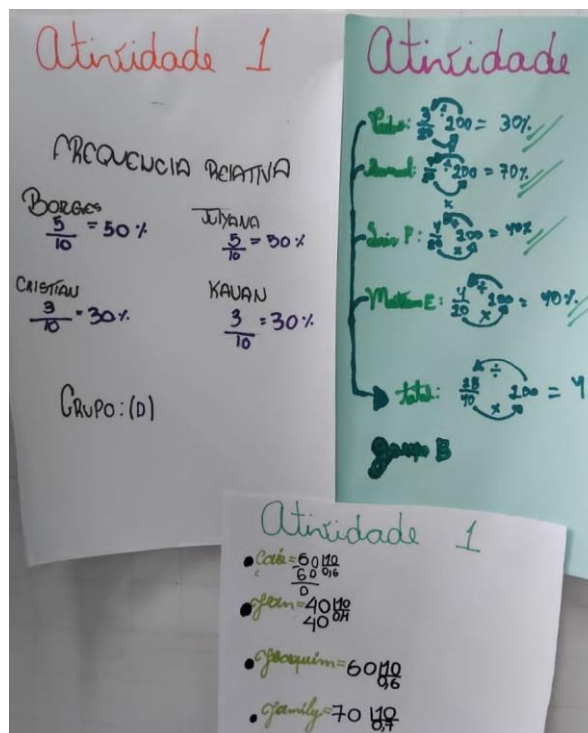 Atividade 1
FREQUENCIA RELATIVA
BORGES
5/10 = 50%
JULYANA
5/10 = 50%
CRISTIAN
3/10 = 30%
KAUAN
3/10 = 30%
GRUPO: (D)
Atividade
Pedro: 3/20 ÷ 200 = 30%
÷ 200 = 70%
× 
200 = 40%
×
4/20 ÷ 200 = 40%
×
total: 28/40 ÷ 200 = 4
×
Grupo B
Atividade 1
Cauã = 60 10
60 0,6
0
Jean = 40 10
40 0,4
Joaquim = 60 10
0,6
Jamily = 70 10
0,7